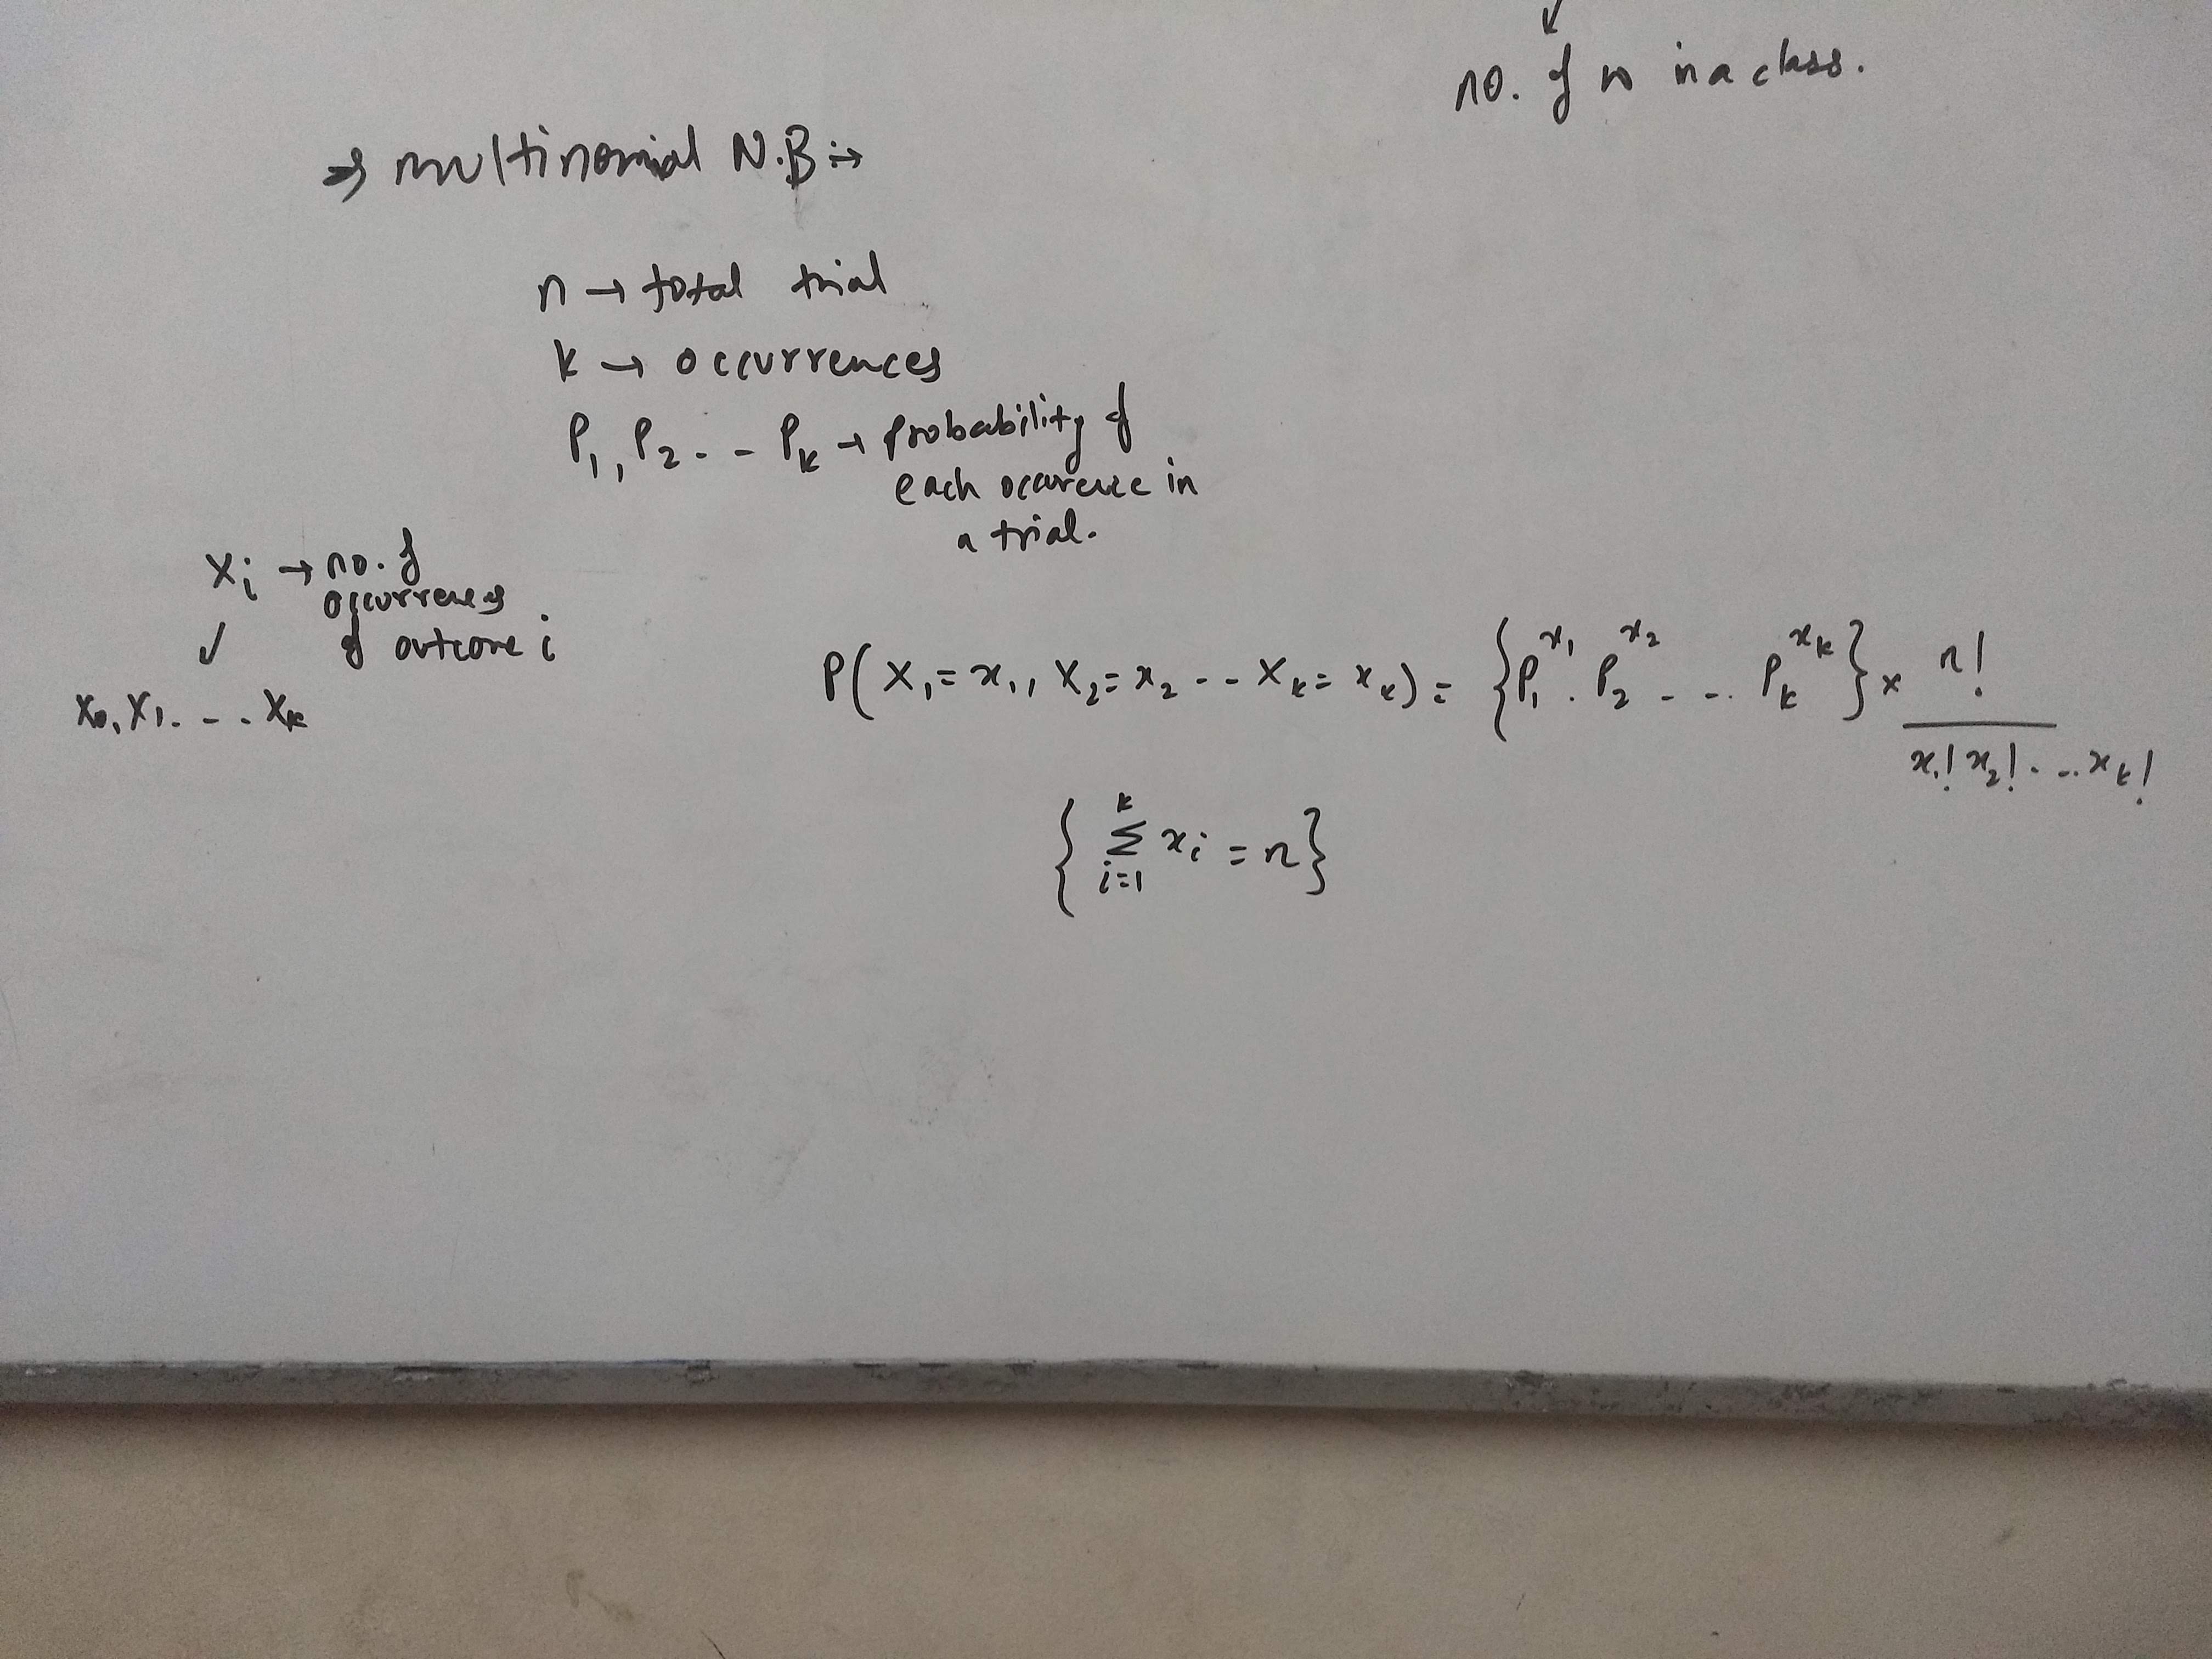 no. of w in a class.
⇒ multinomial N.B :→
n → total trial
k → occurrences
P₁, P₂ - - Pₖ → probability of
each occurence in
a trial.
Xᵢ → no. of
occurrences
of outcome i
X₀, X₁. - - . Xₖ
P( X₁ = x₁, X₂ = x₂ - - Xₖ = xₖ) = {P₁^x₁ . P₂^x₂ - - .. Pₖ^xₖ} × n! / x₁! x₂! . - .. xₖ!
{ Σᵢ₌₁ᵏ xᵢ = n}